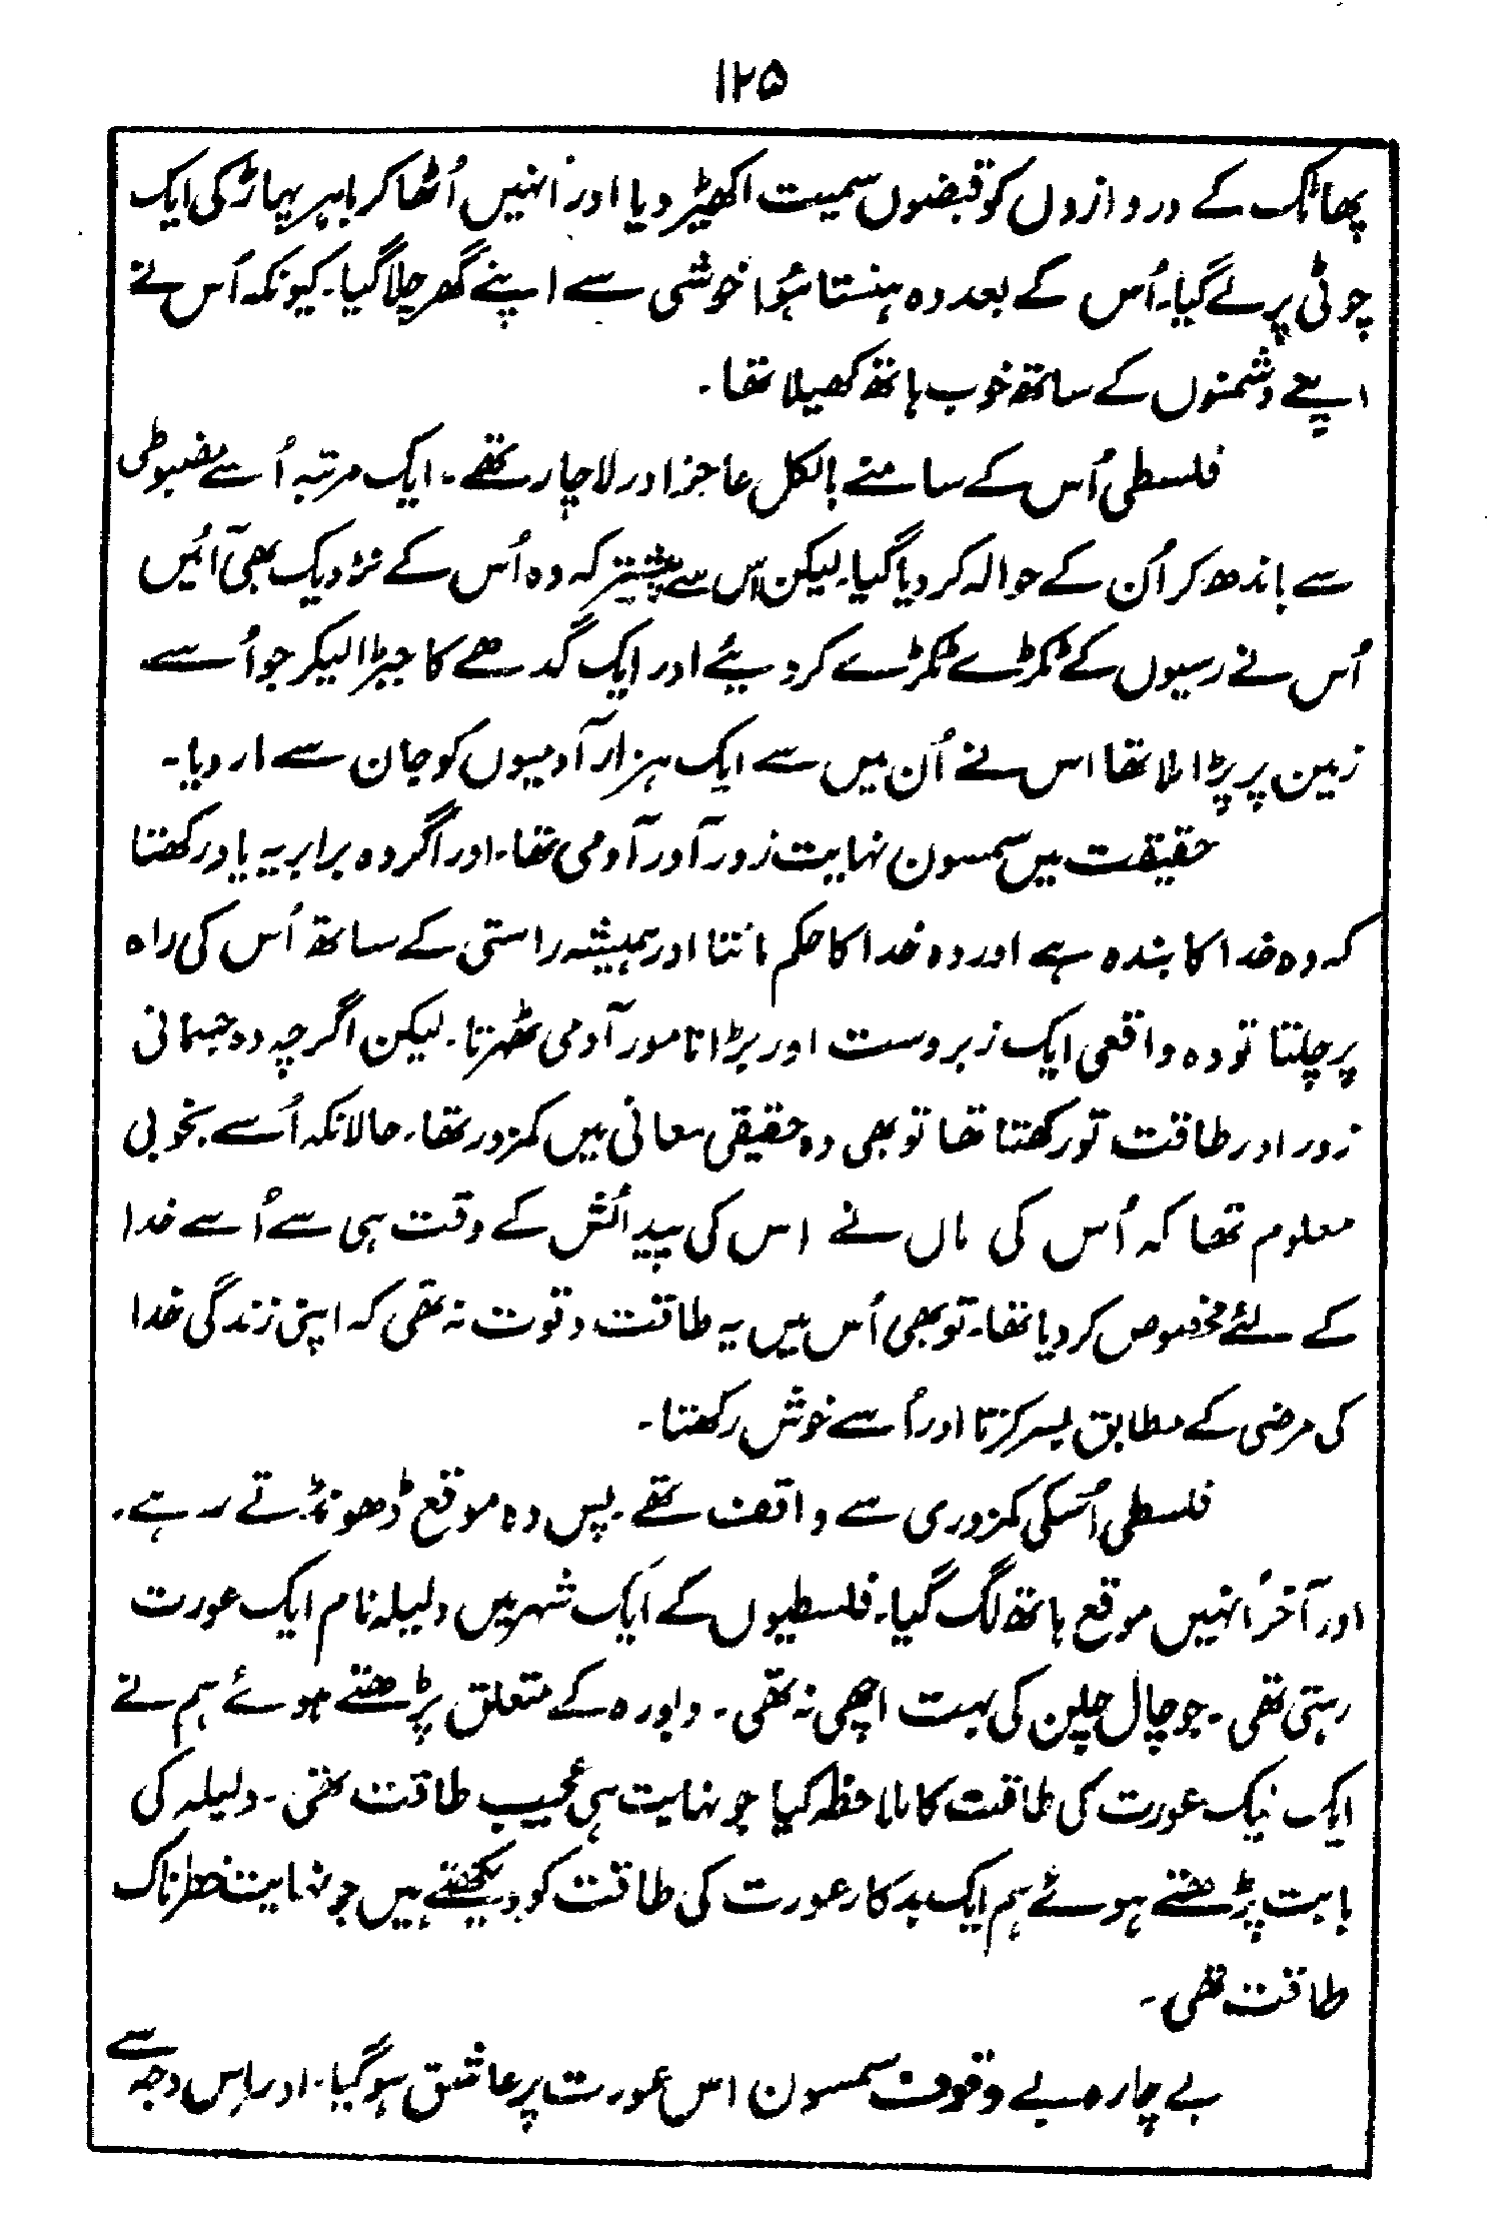 ۱۲۵
پھاٹک کے دروازوں کو قبضوں سمیت اکھیڑ دیا اور اُنہیں اُٹھا کر باہر پہاڑ کی ایک
چوٹی پر لے گیا۔ اُس کے بعد وہ ہنستا ہُوا خوشی سے اپنے گھر چلا گیا۔ کیونکہ اُس نے
اپنے دشمنوں کے ساتھ خوب ہاتھ کھیلا تھا۔
فلسطی اُس کے سامنے بالکل عاجز اور لاچار تھے۔ ایک مرتبہ اُسے مضبوطی
سے باندھ کر اُن کے حوالہ کر دیا گیا۔ لیکن اِس سے پیشتر کہ وہ اُس کے نزدیک بھی آئیں
اُس نے رسیوں کے ٹکڑے ٹکڑے کر دیئے اور ایک گدھے کا جبڑا لیکر جو اُسے
زمین پر پڑا ملا تھا اس نے اُن میں سے ایک ہزار آدمیوں کو جان سے مار دیا۔
حقیقت میں سمسون نہایت زور آور آدمی تھا۔ اور اگر وہ برابر یہ یاد رکھتا
کہ وہ خدا کا بندہ ہے اور وہ خدا کا حکم مانتا اور ہمیشہ راستی کے ساتھ اُس کی راہ
پر چلتا تو وہ واقعی ایک زبردست اور بڑا نامور آدمی ٹھہرتا۔ لیکن اگرچہ وہ جسمانی
زور اور طاقت تو رکھتا تھا تو بھی وہ حقیقی معانی میں کمزور تھا۔ حالانکہ اُسے بخوبی
معلوم تھا کہ اُس کی ماں نے اس کی پیدائش کے وقت ہی سے اُسے خدا
کے لئے مخصوص کر دیا تھا۔ تو بھی اُس میں یہ طاقت و قوت نہ تھی کہ اپنی زندگی خدا
کی مرضی کے مطابق بسر کرتا اور اُسے خوش رکھتا۔
فلسطی اُسکی کمزوری سے واقف تھے۔ پس وہ موقع ڈھونڈتے رہے۔
اور آخر اُنہیں موقع ہاتھ لگ گیا۔ فلسطیوں کے ایک شہر میں دلیلہ نام ایک عورت
رہتی تھی۔ جو چال چلن کی بہت اچھی نہ تھی۔ دبورہ کے متعلق پڑھتے ہوئے ہم نے
ایک نیک عورت کی طاقت کا ملاحظہ کیا جو نہایت ہی عجیب طاقت تھی۔ دلیلہ کی
بابت پڑھتے ہوئے ہم ایک بدکار عورت کی طاقت کو دیکھتے ہیں جو نہایت خطرناک
طاقت تھی۔
بے چارہ بے وقوف سمسون اس عورت پر عاشق ہو گیا۔ اور اِس وجہ سے